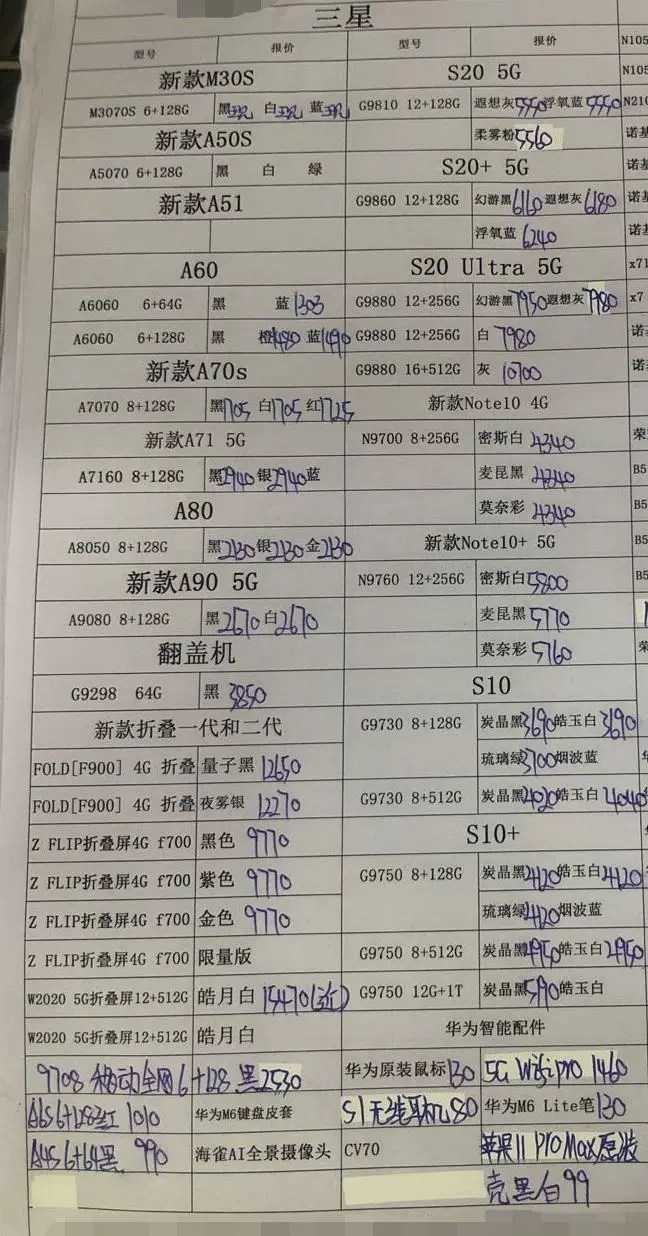 三星
型号 报价
新款M30S
M3070S 6+128G 黑 白 蓝
新款A50S
A5070 6+128G 黑 白 绿
新款A51
A60
A6060 6+64G 黑 蓝1303
A6060 6+128G 黑 橙1480 蓝1490
新款A70s
A7070 8+128G 黑1705 白1705 红1725
新款A71 5G
A7160 8+128G 黑2940 银2940 蓝
A80
A8050 8+128G 黑2130 银2130 金2130
新款A90 5G
A9080 8+128G 黑2670 白2670
翻盖机
G9298 64G 黑 3850
新款折叠一代和二代
FOLD[F900] 4G 折叠 量子黑 12650
FOLD[F900] 4G 折叠 夜雾银 12270
Z FLIP折叠屏4G f700 黑色 9770
Z FLIP折叠屏4G f700 紫色 9770
Z FLIP折叠屏4G f700 金色 9770
Z FLIP折叠屏4G f700 限量版
W2020 5G折叠屏12+512G 皓月白 15470
W2020 5G折叠屏12+512G 皓月白
9708 移动全网6+128 黑2530
A6S 6+128红 1010 华为M6键盘皮套
A4S 6+64黑 990 海雀AI全景摄像头
型号 报价
S20 5G
G9810 12+128G 遐想灰5550 浮氧蓝5550
柔雾粉5560
S20+ 5G
G9860 12+128G 幻游黑6160 遐想灰6180
浮氧蓝 6240
S20 Ultra 5G
G9880 12+256G 幻游黑7950 遐想灰7980
G9880 12+256G 白 7980
G9880 16+512G 灰 10700
新款Note10 4G
N9700 8+256G 密斯白 4340
麦昆黑 4340
莫奈彩 4340
新款Note10+ 5G
N9760 12+256G 密斯白5800
麦昆黑 5770
莫奈彩 5760
S10
G9730 8+128G 炭晶黑3690 皓玉白3690
琉璃绿3700 烟波蓝
G9730 8+512G 炭晶黑4020 皓玉白4040
S10+
G9750 8+128G 炭晶黑4120 皓玉白4120
琉璃绿4120 烟波蓝
G9750 8+512G 炭晶黑4950 皓玉白4950
G9750 12G+1T 炭晶黑5190 皓玉白
华为智能配件
华为原装鼠标130 5G Wifi pro 1460
S1无线耳机80 华为M6 Lite笔130
CV70 苹果11 Pro Max原装
壳黑白99
N105
N105
N210
诺基
诺基
诺基
诺基
x71
x7
诺
诺
荣
B5
B5
B5
B5